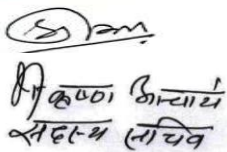 कृष्ण आचार्य
सदस्य सचिव